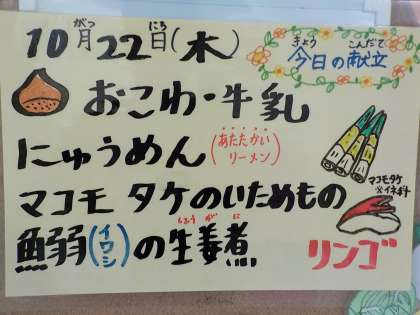 10月22日(木)
がつ
にち
きょう
こんだて
今日の献立
おこわ・牛乳
にゅうめん(あたたかいリーメン)
マコモタケのいためもの
マコモタケ
※イネ科
鰯(イワシ)の生姜煮
しょうがに
リンゴ